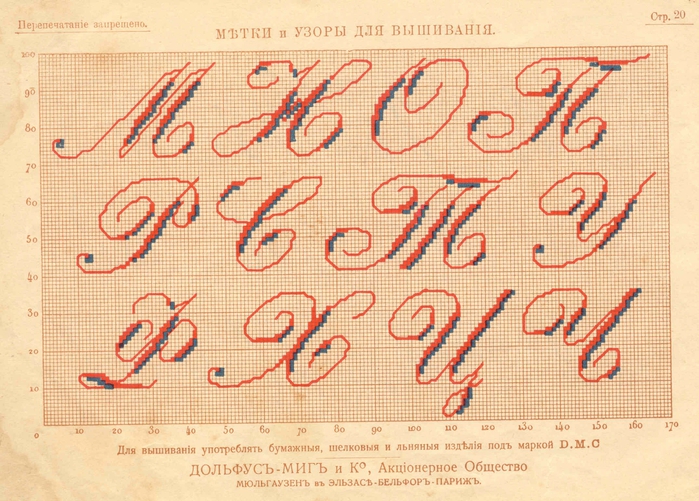 Перепечатаніе запрещено.
Стр. 20
МѢТКИ и УЗОРЫ ДЛЯ ВЫШИВАНІЯ.
100
90
80
70
60
50
40
30
20
10
М Н О П
Р С Т У
Ф Х Ц Ч
0 10 20 30 40 50 60 70 80 90 100 110 120 130 140 150 160 170
Для вышиванія употреблять бумажныя, шелковыя и льняныя издѣлія подъ маркой D.M.C
ДОЛЬФУСЪ-МИГЪ и Ко, Акціонерное Общество
МЮЛЬГАУЗЕНЪ въ ЭЛЬЗАСѢ-БЕЛЬФОРЪ-ПАРИЖЪ.